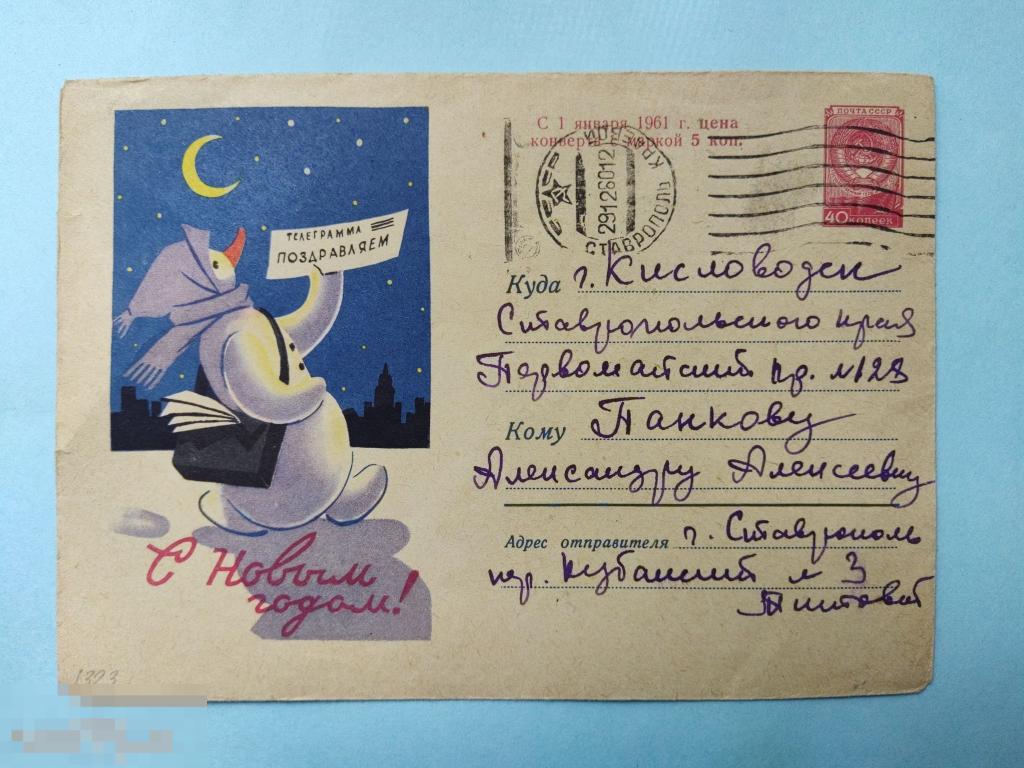 С 1 января 1961 г. цена
конверта с маркой 5 коп.
ПОЧТА СССР
40 КОПЕЕК
СТАВРОПОЛЬ КРАЕВ
29126012
ТЕЛЕГРАММА
ПОЗДРАВЛЯЕМ
Куда г. Кисловодск
Ставропольского края
Первомайский пр. №123
Кому Панкову
Александру Алексеевичу
Адрес отправителя г. Ставрополь
пер. Кубанский № 3
С Новым
годом!
1323